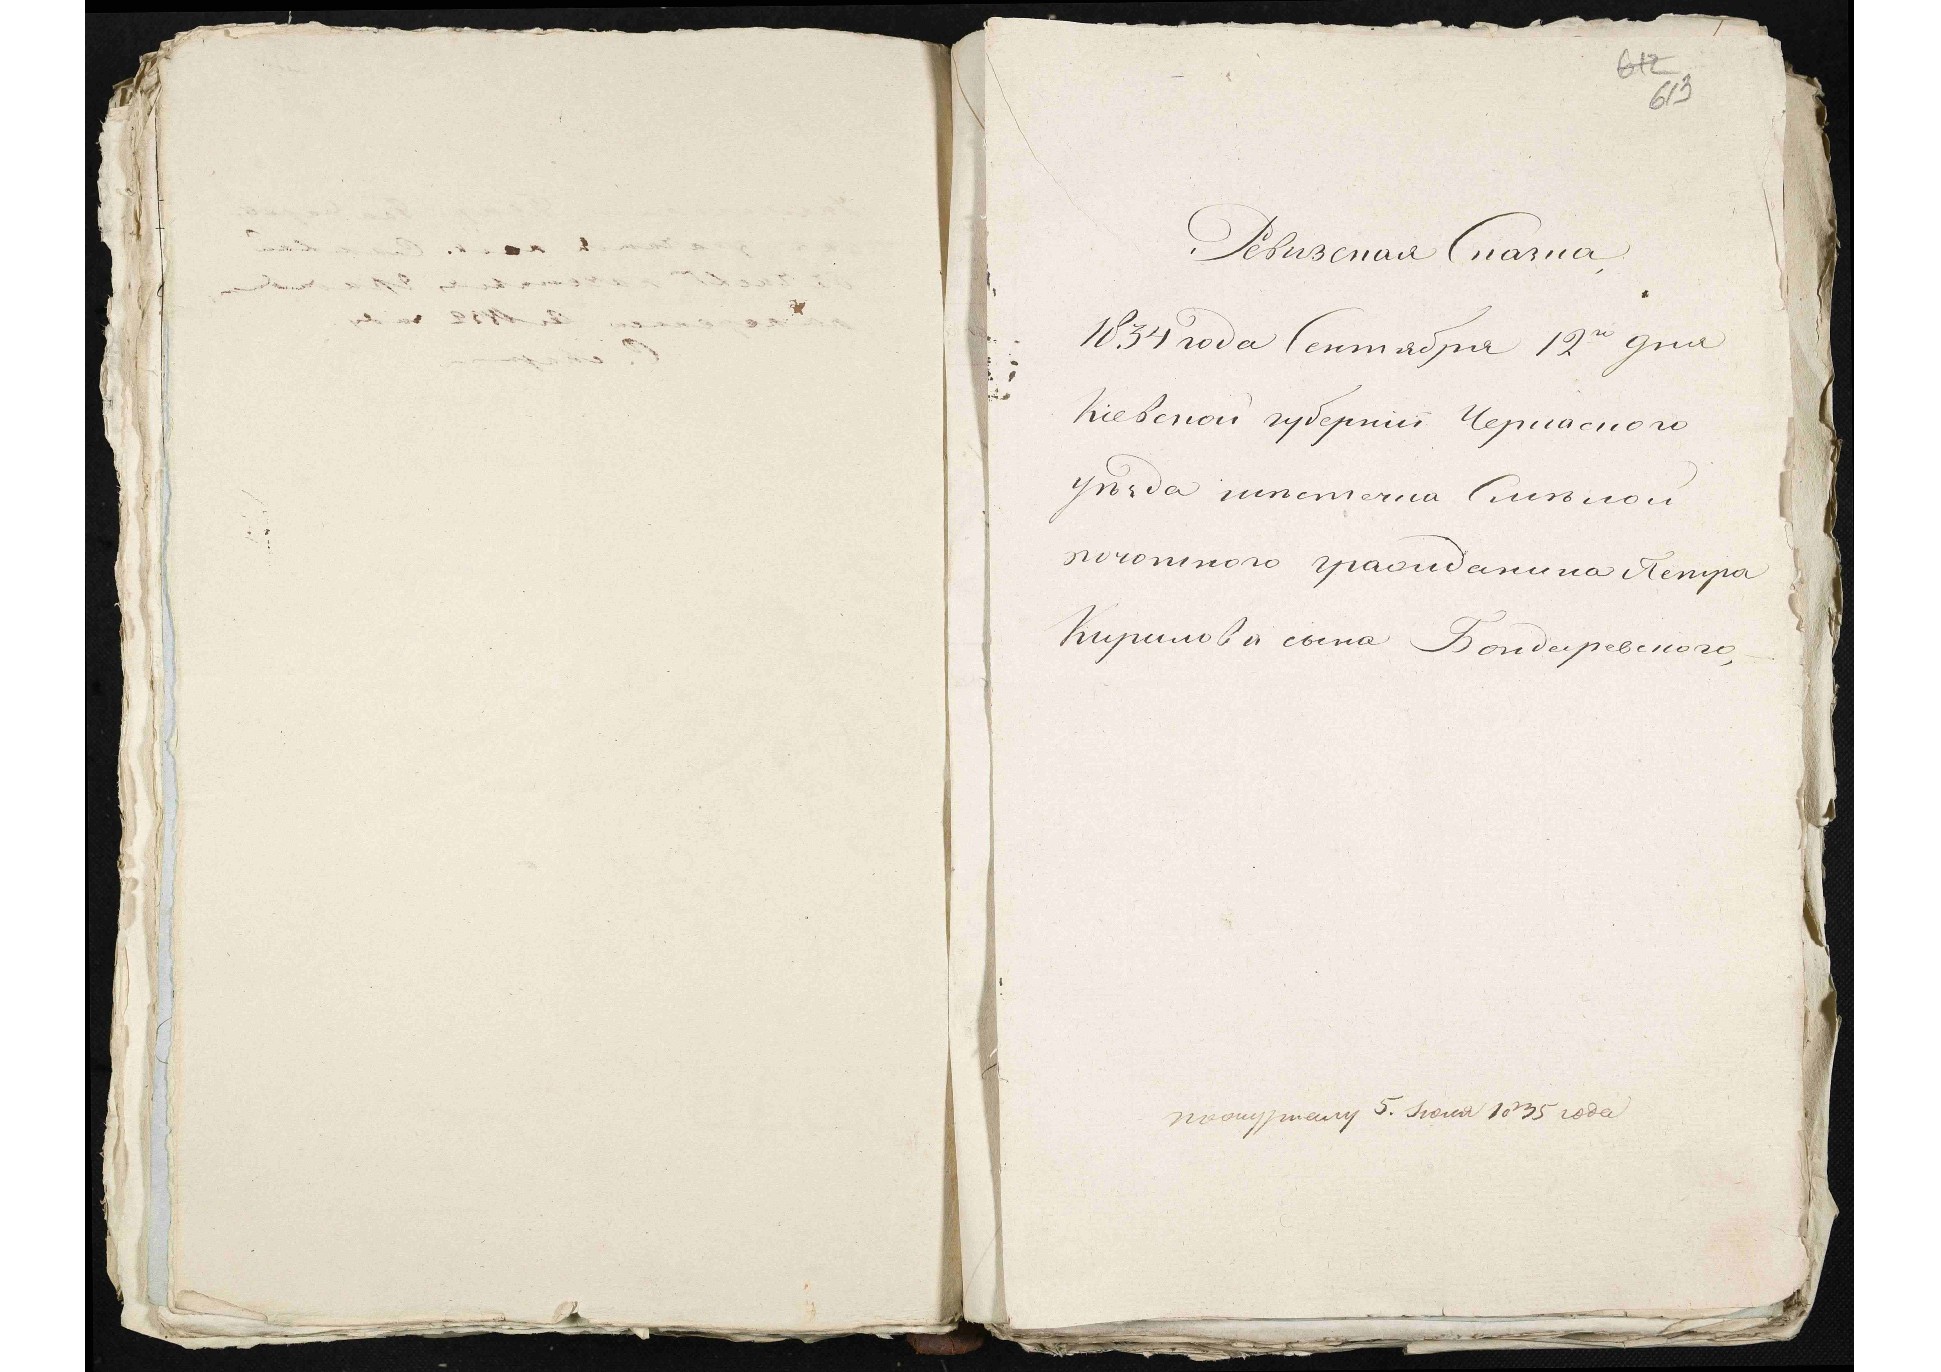 612
613
Ревизская Сказка,
1834 года Сентября 12го дня
Кіевской губерніи Черкаского
уѣзда мѣстечка Смѣлой
почотного гражданина Петра
Кирилова сына Бондаревского,
по журналу 5. Июня 1835 года